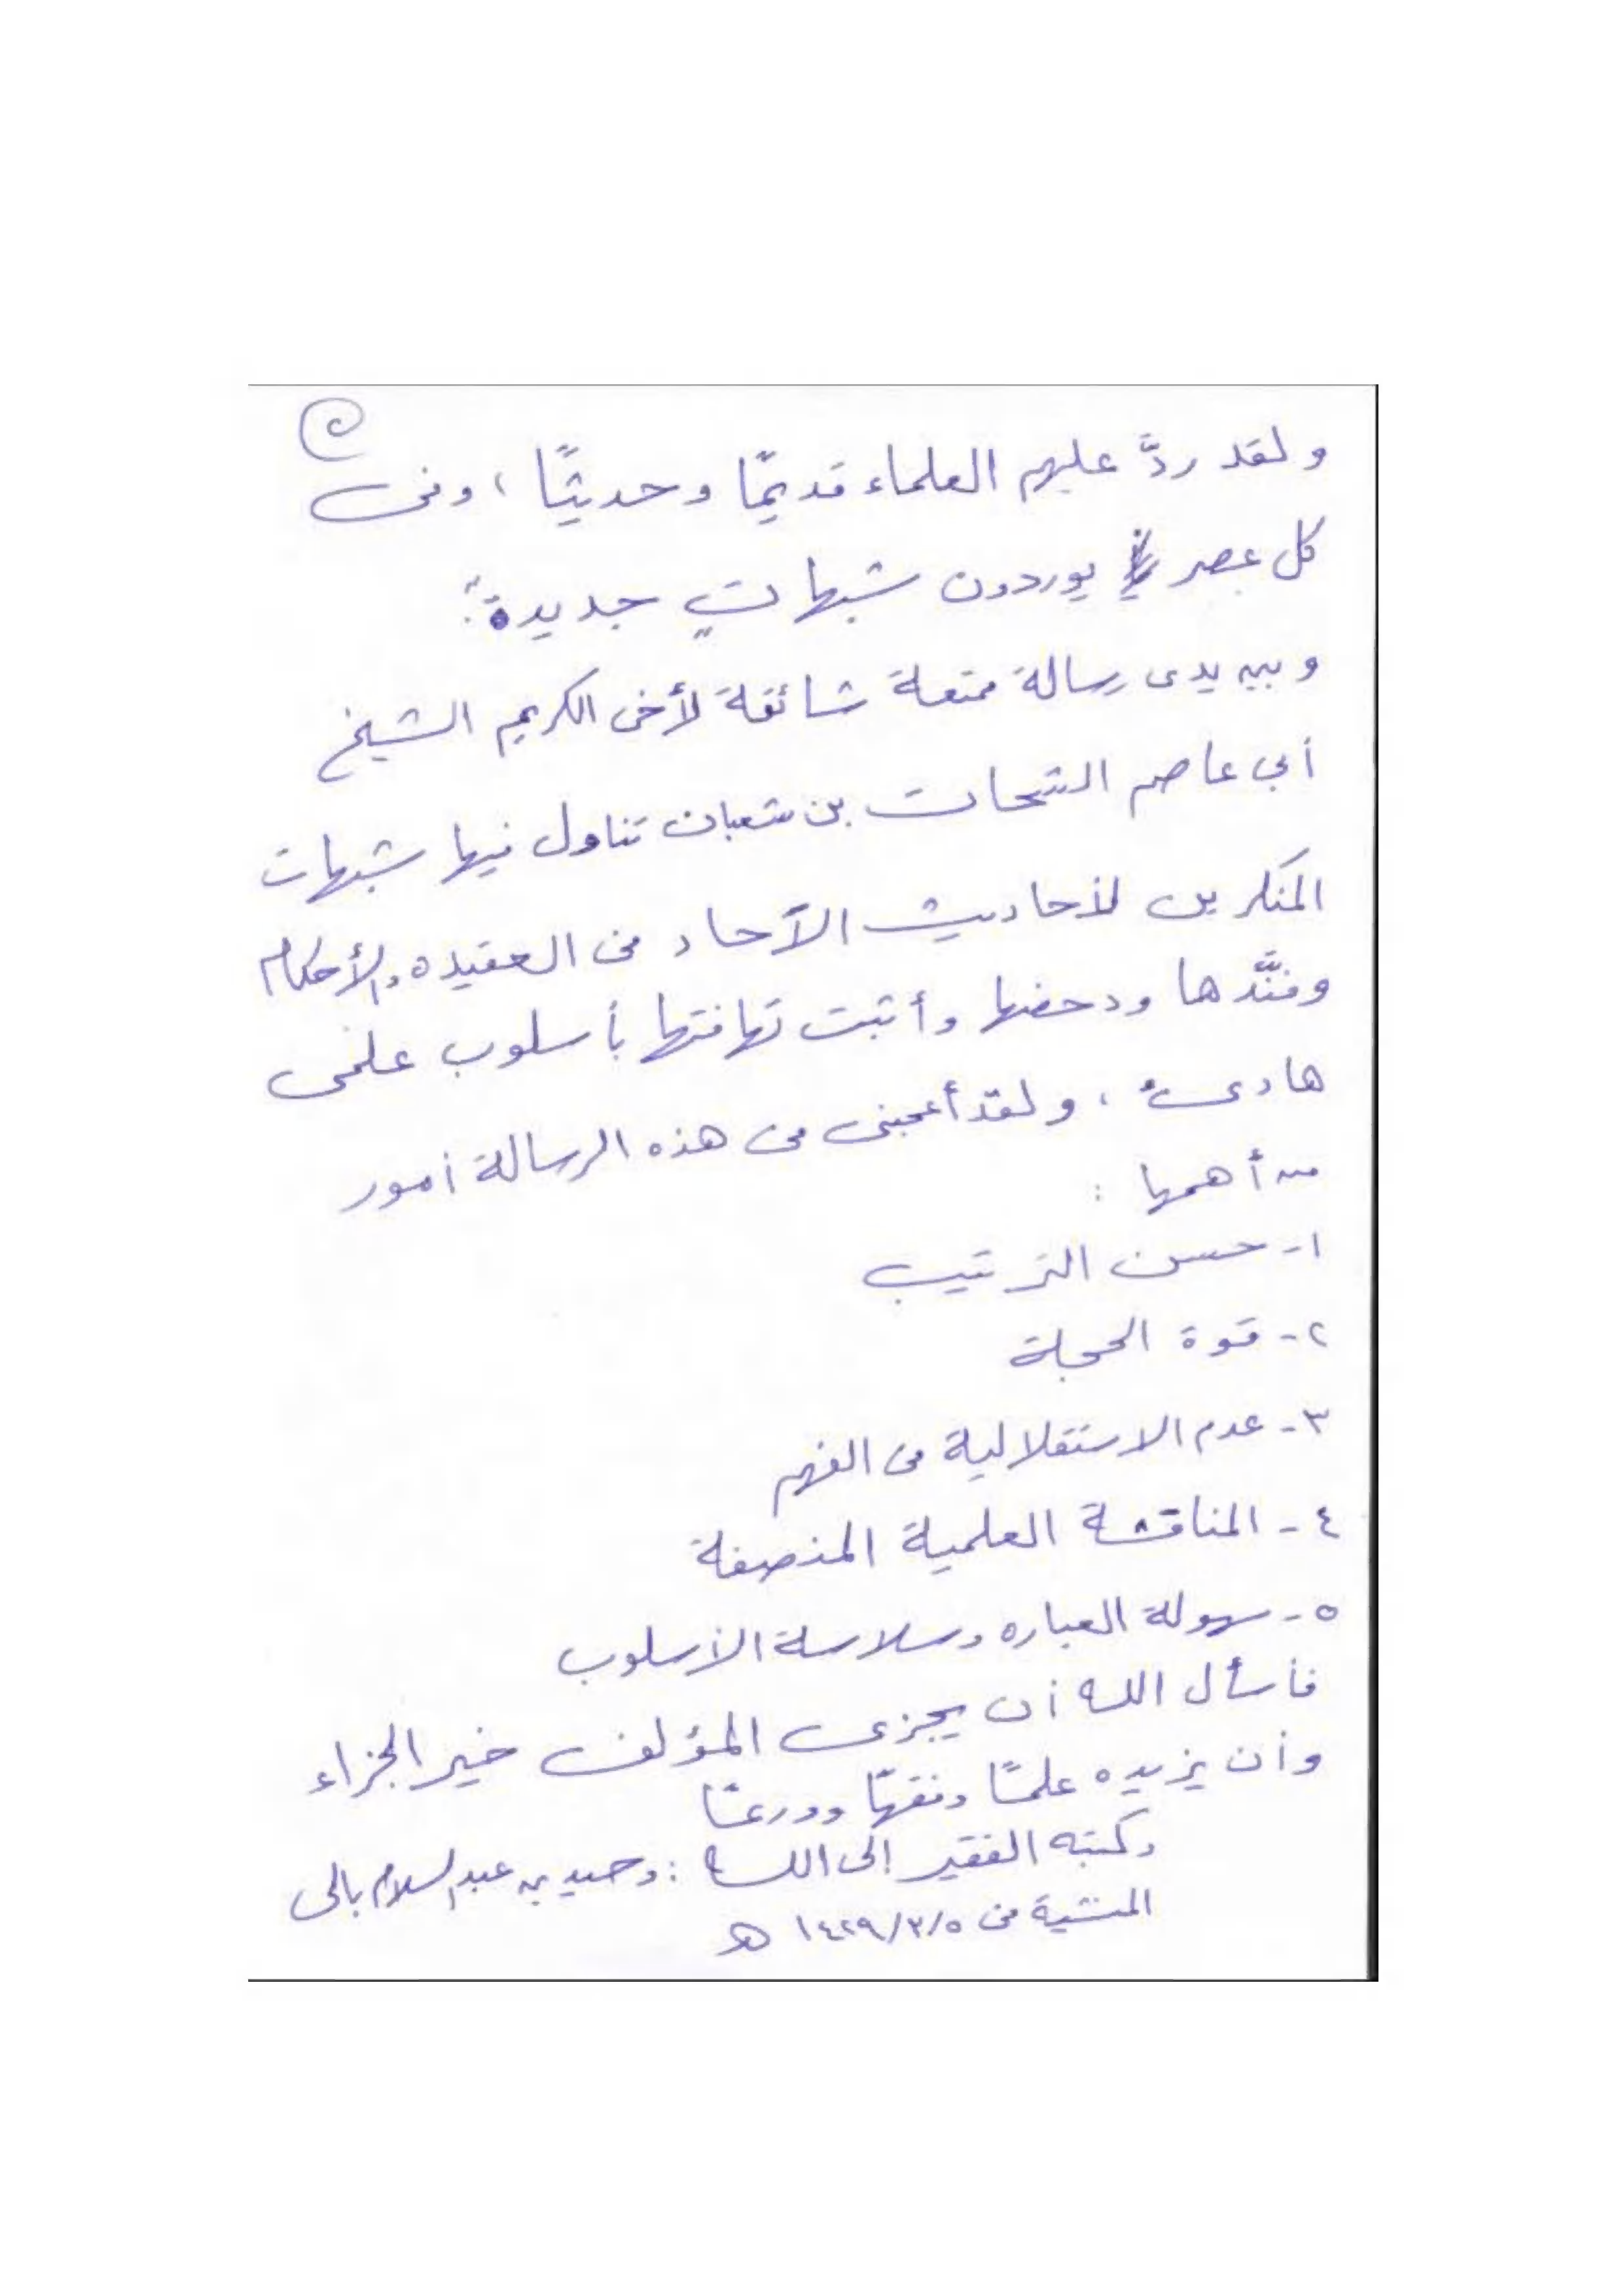 ٢
ولقد ردَّ عليهم العلماء قديمًا وحديثًا ، وفى
كل عصر يوردون شبهاتٍ جديدة :
وبين يدى رسالة ممتعة شائقة لأخى الكريم الشيخ
أبي عاصم الشحات بن شعبان تناول فيها شبهات
المنكرين لأحاديث الآحاد فى العقيده والأحكام
وفنَّدها ودحضها وأثبت تهافتها بأسلوب علمى
هادىء ، ولقد أعجبنى فى هذه الرسالة أمور
من أهمها :
١- حسن الترتيب
٢- قوة الحجة
٣- عدم الاستقلالية فى الفهم
٤- المناقشة العلمية المنصفة
٥- سهولة العباره وسلاسة الأسلوب
فأسأل الله أن يجزى المؤلف خير الجزاء
وأن يزيده علمًا وفقهًا وورعًا
وكتبه الفقير إلى الله : وحيد بن عبد السلام بالى
المنشية فى ١٤٢٩/٣/٥ هـ